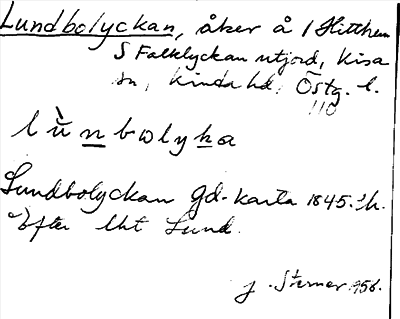 Lundbolyckan, åker å 1 Hitthem
S Falklyckan utjord, Kisa
sn, Kinda hd, Östg. l.
110
lùnbωlyka
Lundbolyckan gd-karta 1845.
Efter lht Lund.
J. Sterner 1956.